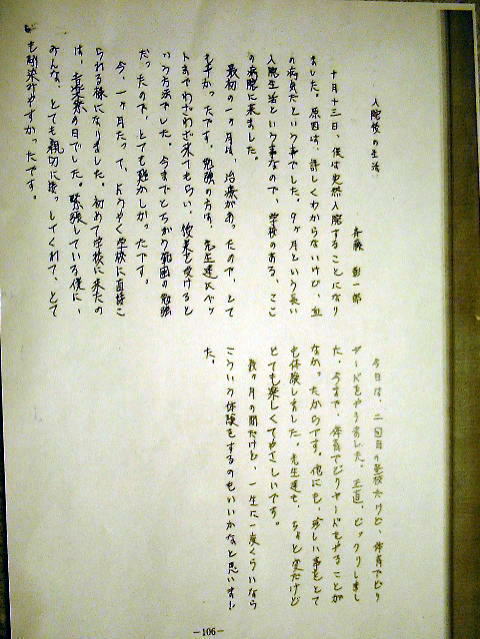 入院後の生活
斉藤 一郎
十月十三日、僕は突然入院することになり
ました。原因は、詳しくわからないけど、血
の病気だという事でした。9ヶ月という長い
入院生活という事なので、学校のある、ここ
の病院に来ました。
最初の一ヶ月は、治療があったので、とて
も辛かったです。勉強の方は、先生達にベッ
トまでわざわざ来てもらい、授業を受けると
いう方法でした。今までとちがう範囲の勉強
だったので、とても難かしかったです。
今、一ヶ月たって、ようやく学校に直接こ
られる様になりました。初めて学校に来たの
は、音楽祭の日でした。緊張している僕に、
みんな、とても親切に接っしてくれて、とて
も馴染みやすかったです。
今日は、二回目の登校だけど、体育でビリ
ヤードをやりました。正直、ビックリしまし
た。今まで、体育でビリヤードをやることが
なかったからです。他にも、珍しい事をとて
も体験しました。先生達も、ちょっと変だけど
とても楽しくてやさしいです。
数ヶ月の間だけど、一生に一度くらいなら
こういう体験をするのもいいかなと思いまし
た。
－106－